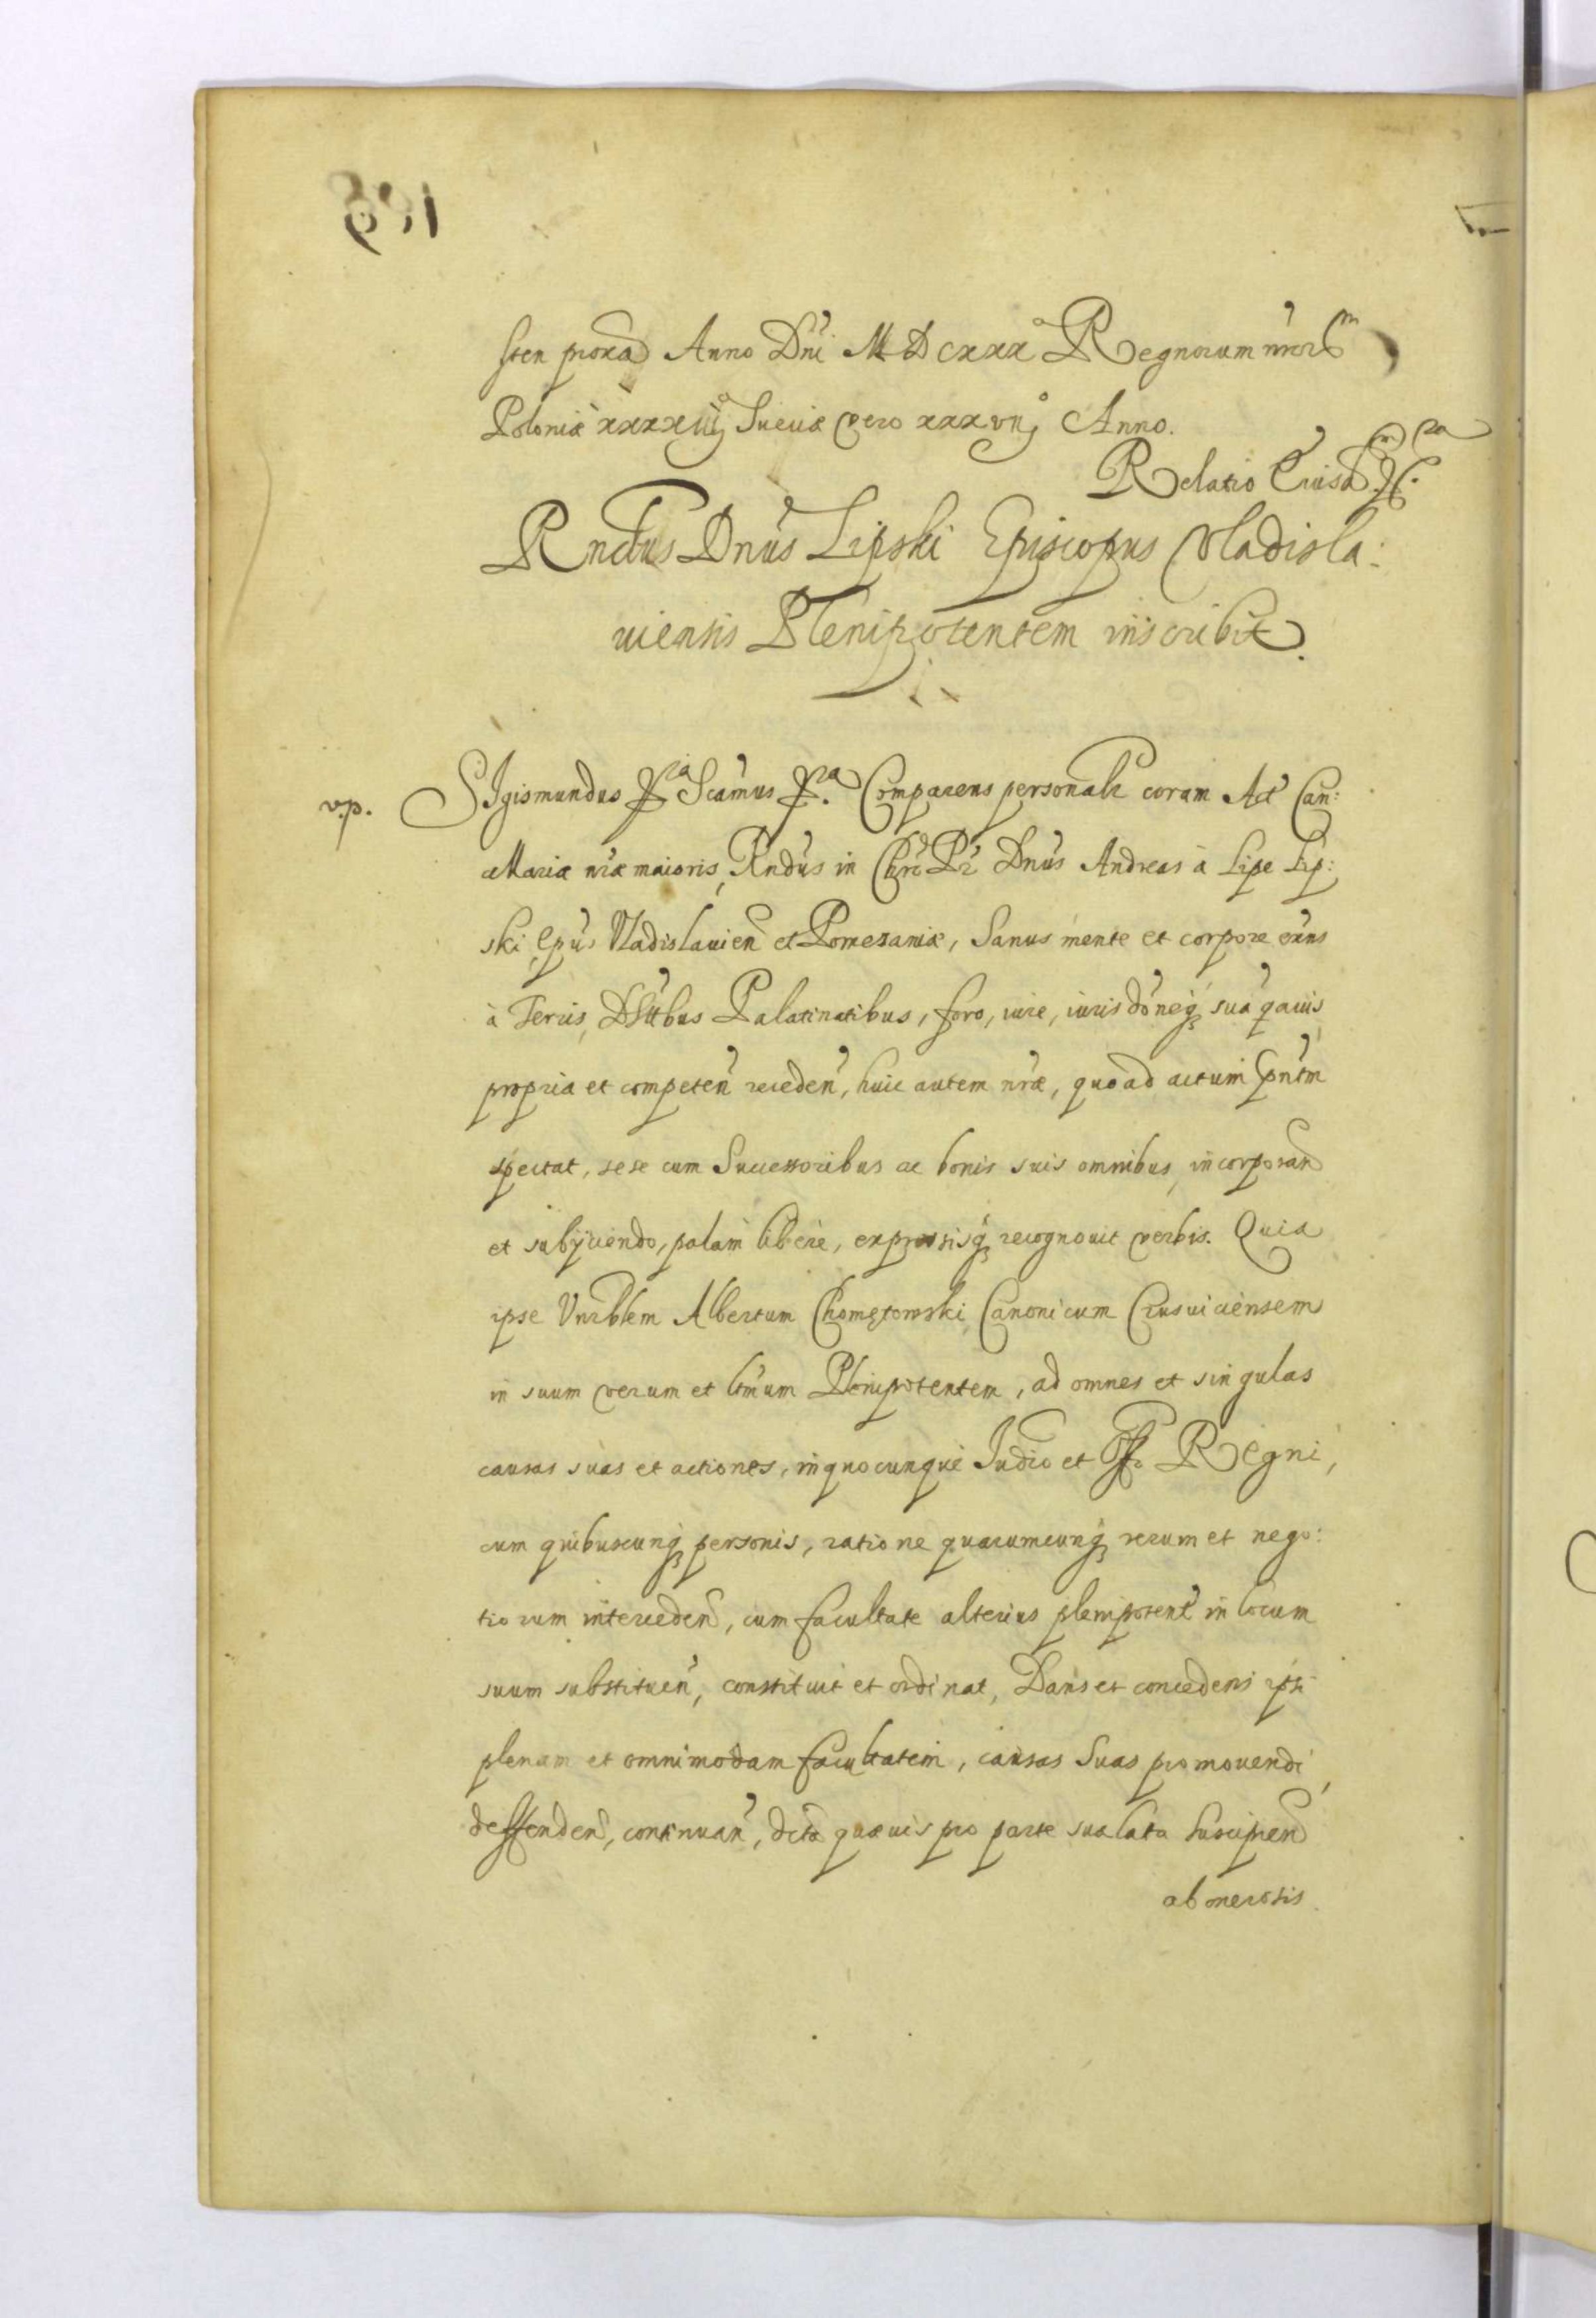 sten proxa Anno Dni MDCXXX Regnorum nror
Poloniæ xxxxiii Sueciæ vero xxxvii Anno.
Relatio Eiusd
Rndus Dnus Lipski Episcopus Vladisla:
uiensis Plenipotentem inscribit.
v.p.
SIgismundus Scamus Comparens personalr coram Act Can:
cellariæ nræ maioris, Rndus in Chro Pr Dnus Andreas à Lipe Lip:
ski Epus Vladislauien et Pomeraniæ, Sanus mente et corpore exns
à Terris, Distbus Palatinatibus, foro, iure, iurisdoneq sua qauis
propria et competen receden, huic autem nræ, quo ad actum pntm
spectat, sese cum Successoribus ac bonis suis omnibus, incorporan
et subÿciendo, palam libere, expressisq recognouit verbis. Quia
ipse Vnrblem Albertum Chomętowski, Canonicum Crusuiciensem
in suum verum et ltmum Plenipotentem, ad omnes et singulas
causas suas et actiones, in quocunque Iudio et Offo Regni,
cum quibuscunq personis, ratione quarumcunq rerum et nego:
tiorum interceden, cum facultate alterius plenipotent in locum
suum substituen, constituit et ordinat, Dans et concedens ipsi
plenam et omnimodam facultatem, causas Suas promouendi,
deffenden, continuan, dcta quæuis pro parte sua lata suscipien
ab onerosis